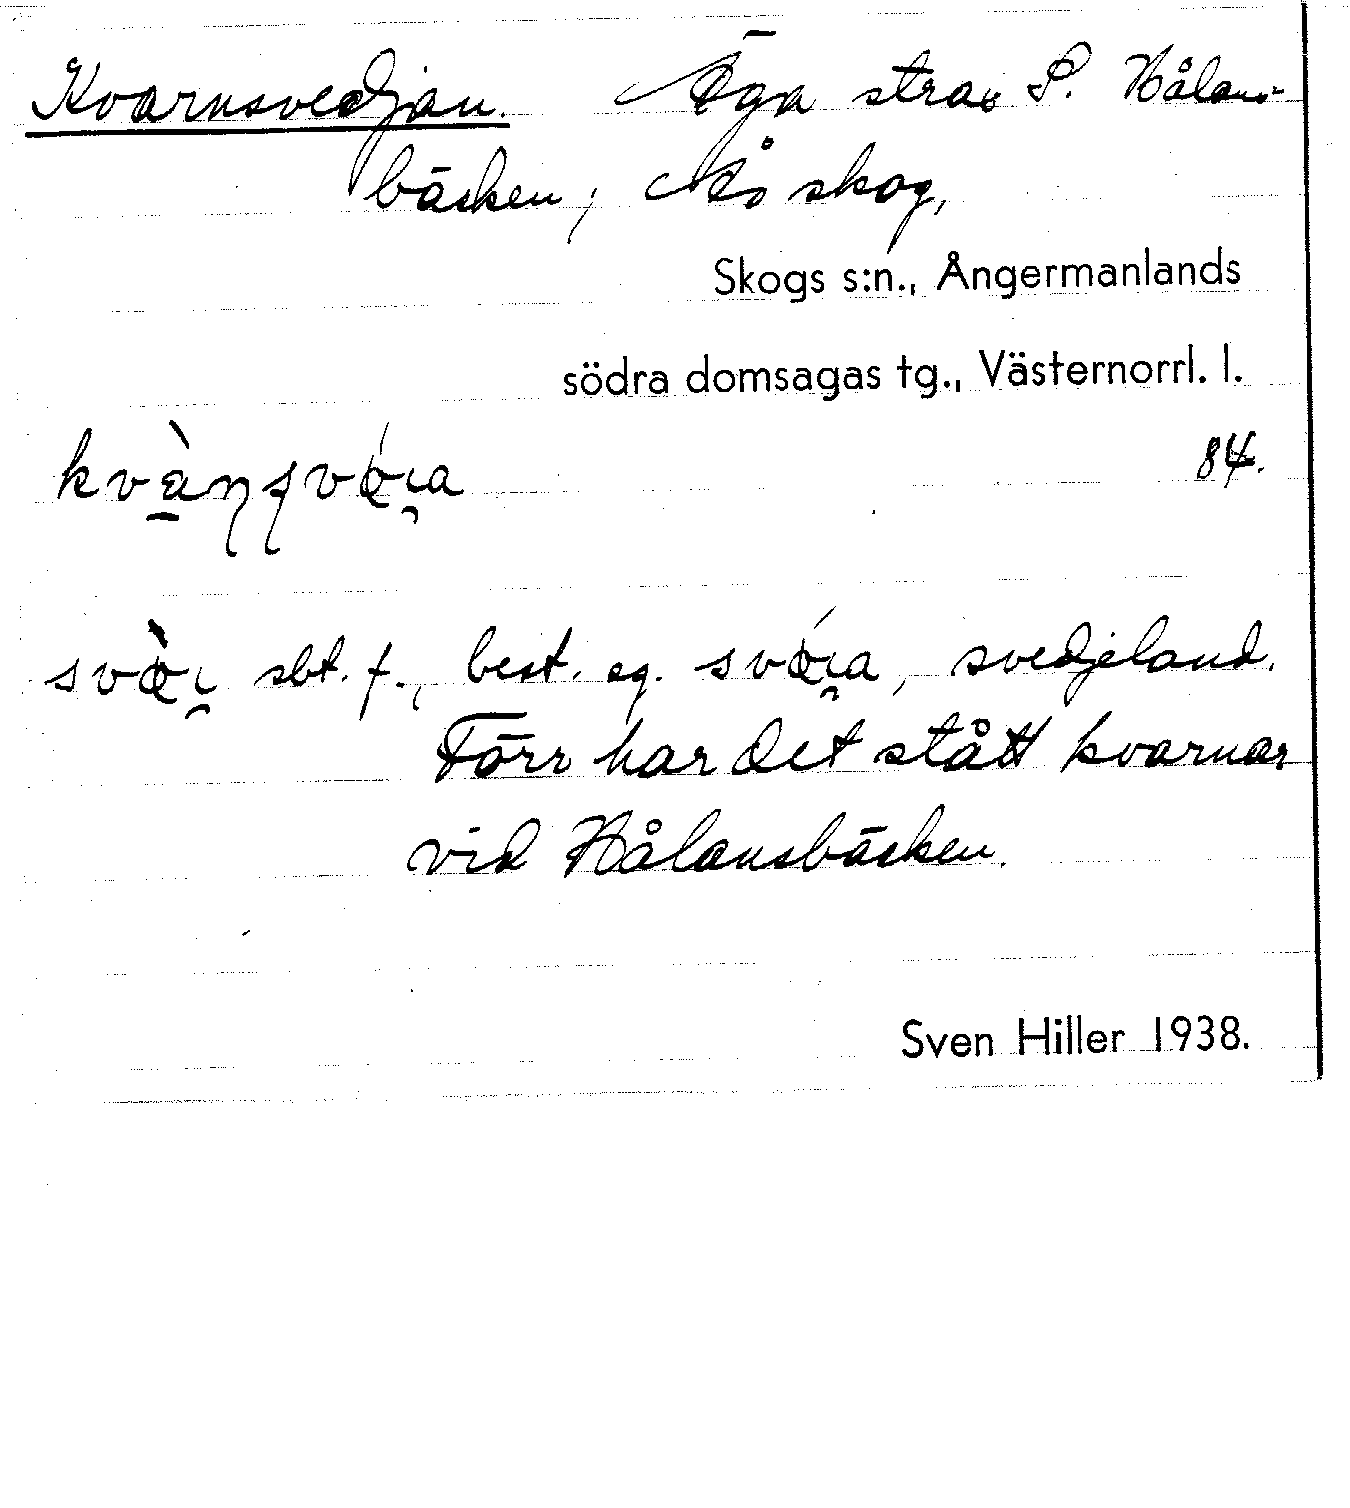 Kvarnsvedjan. Äga strax S. Hålans-
bäcken, Åskog,
Skogs s:n., Ångermanlands
södra domsagas tg., Västernorrl. l.
84.
sbt. f., best. sg. svedjeland.
Förr har det stått kvarnar
vid Hålansbäcken.
Sven Hiller 1938.